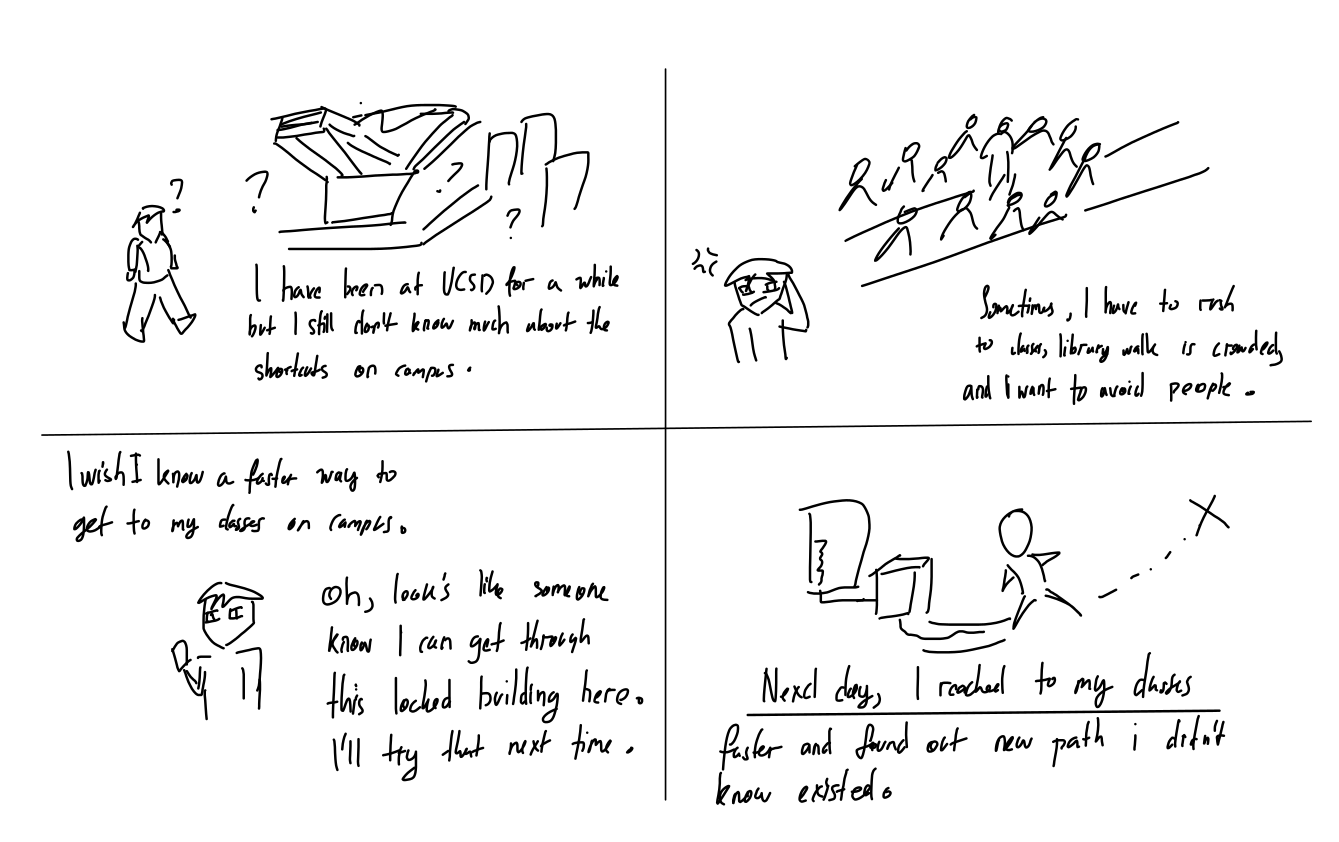 ?
?
?
?
I have been at UCSD for a while
but I still don't know much about the
shortcuts on campus.
Sometimes, I have to rush
to classes, library walk is crowded,
and I want to avoid people.
I wish I know a faster way to
get to my classes on campus.
Oh, look's like someone
know I can get through
this locked building here.
I'll try that next time.
Next day, I reached to my classes
faster and found out new path i didn't
know existed.